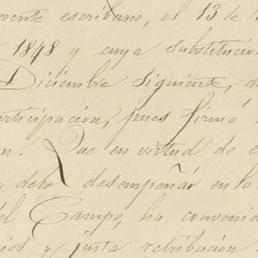 escribano, el 13 de
1848 y cuya substitución
Diciembre siguiente,
articipación, pues firmó
n. Que en virtud de
debe desempeñar en lo
del Campo, ha convenido
ios y justa retribución